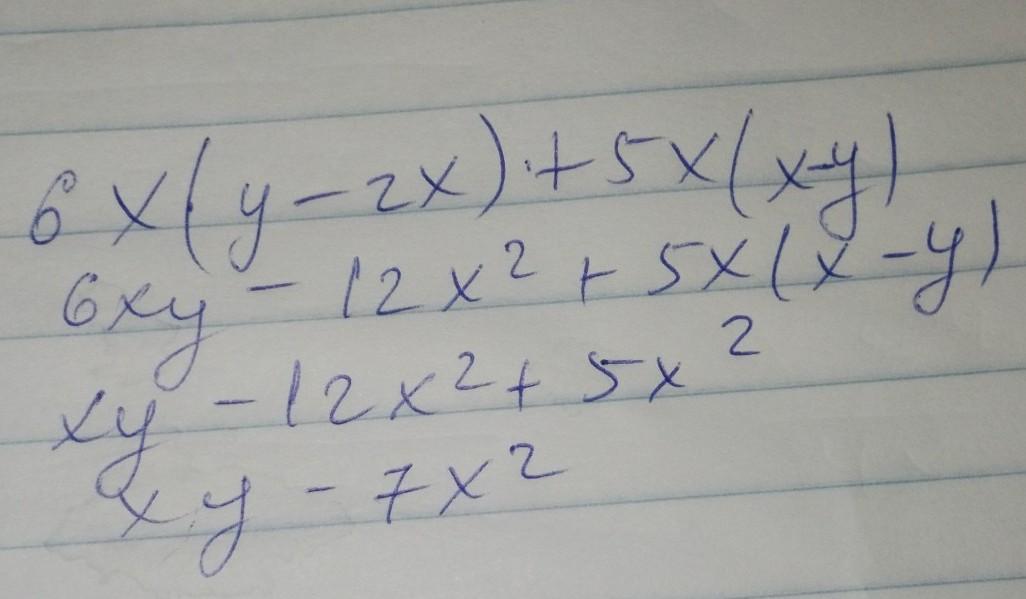 6x(y-2x)+5x(x-y)
6xy-12x²+5x(x-y)
xy-12x²+5x²
xy-7x²